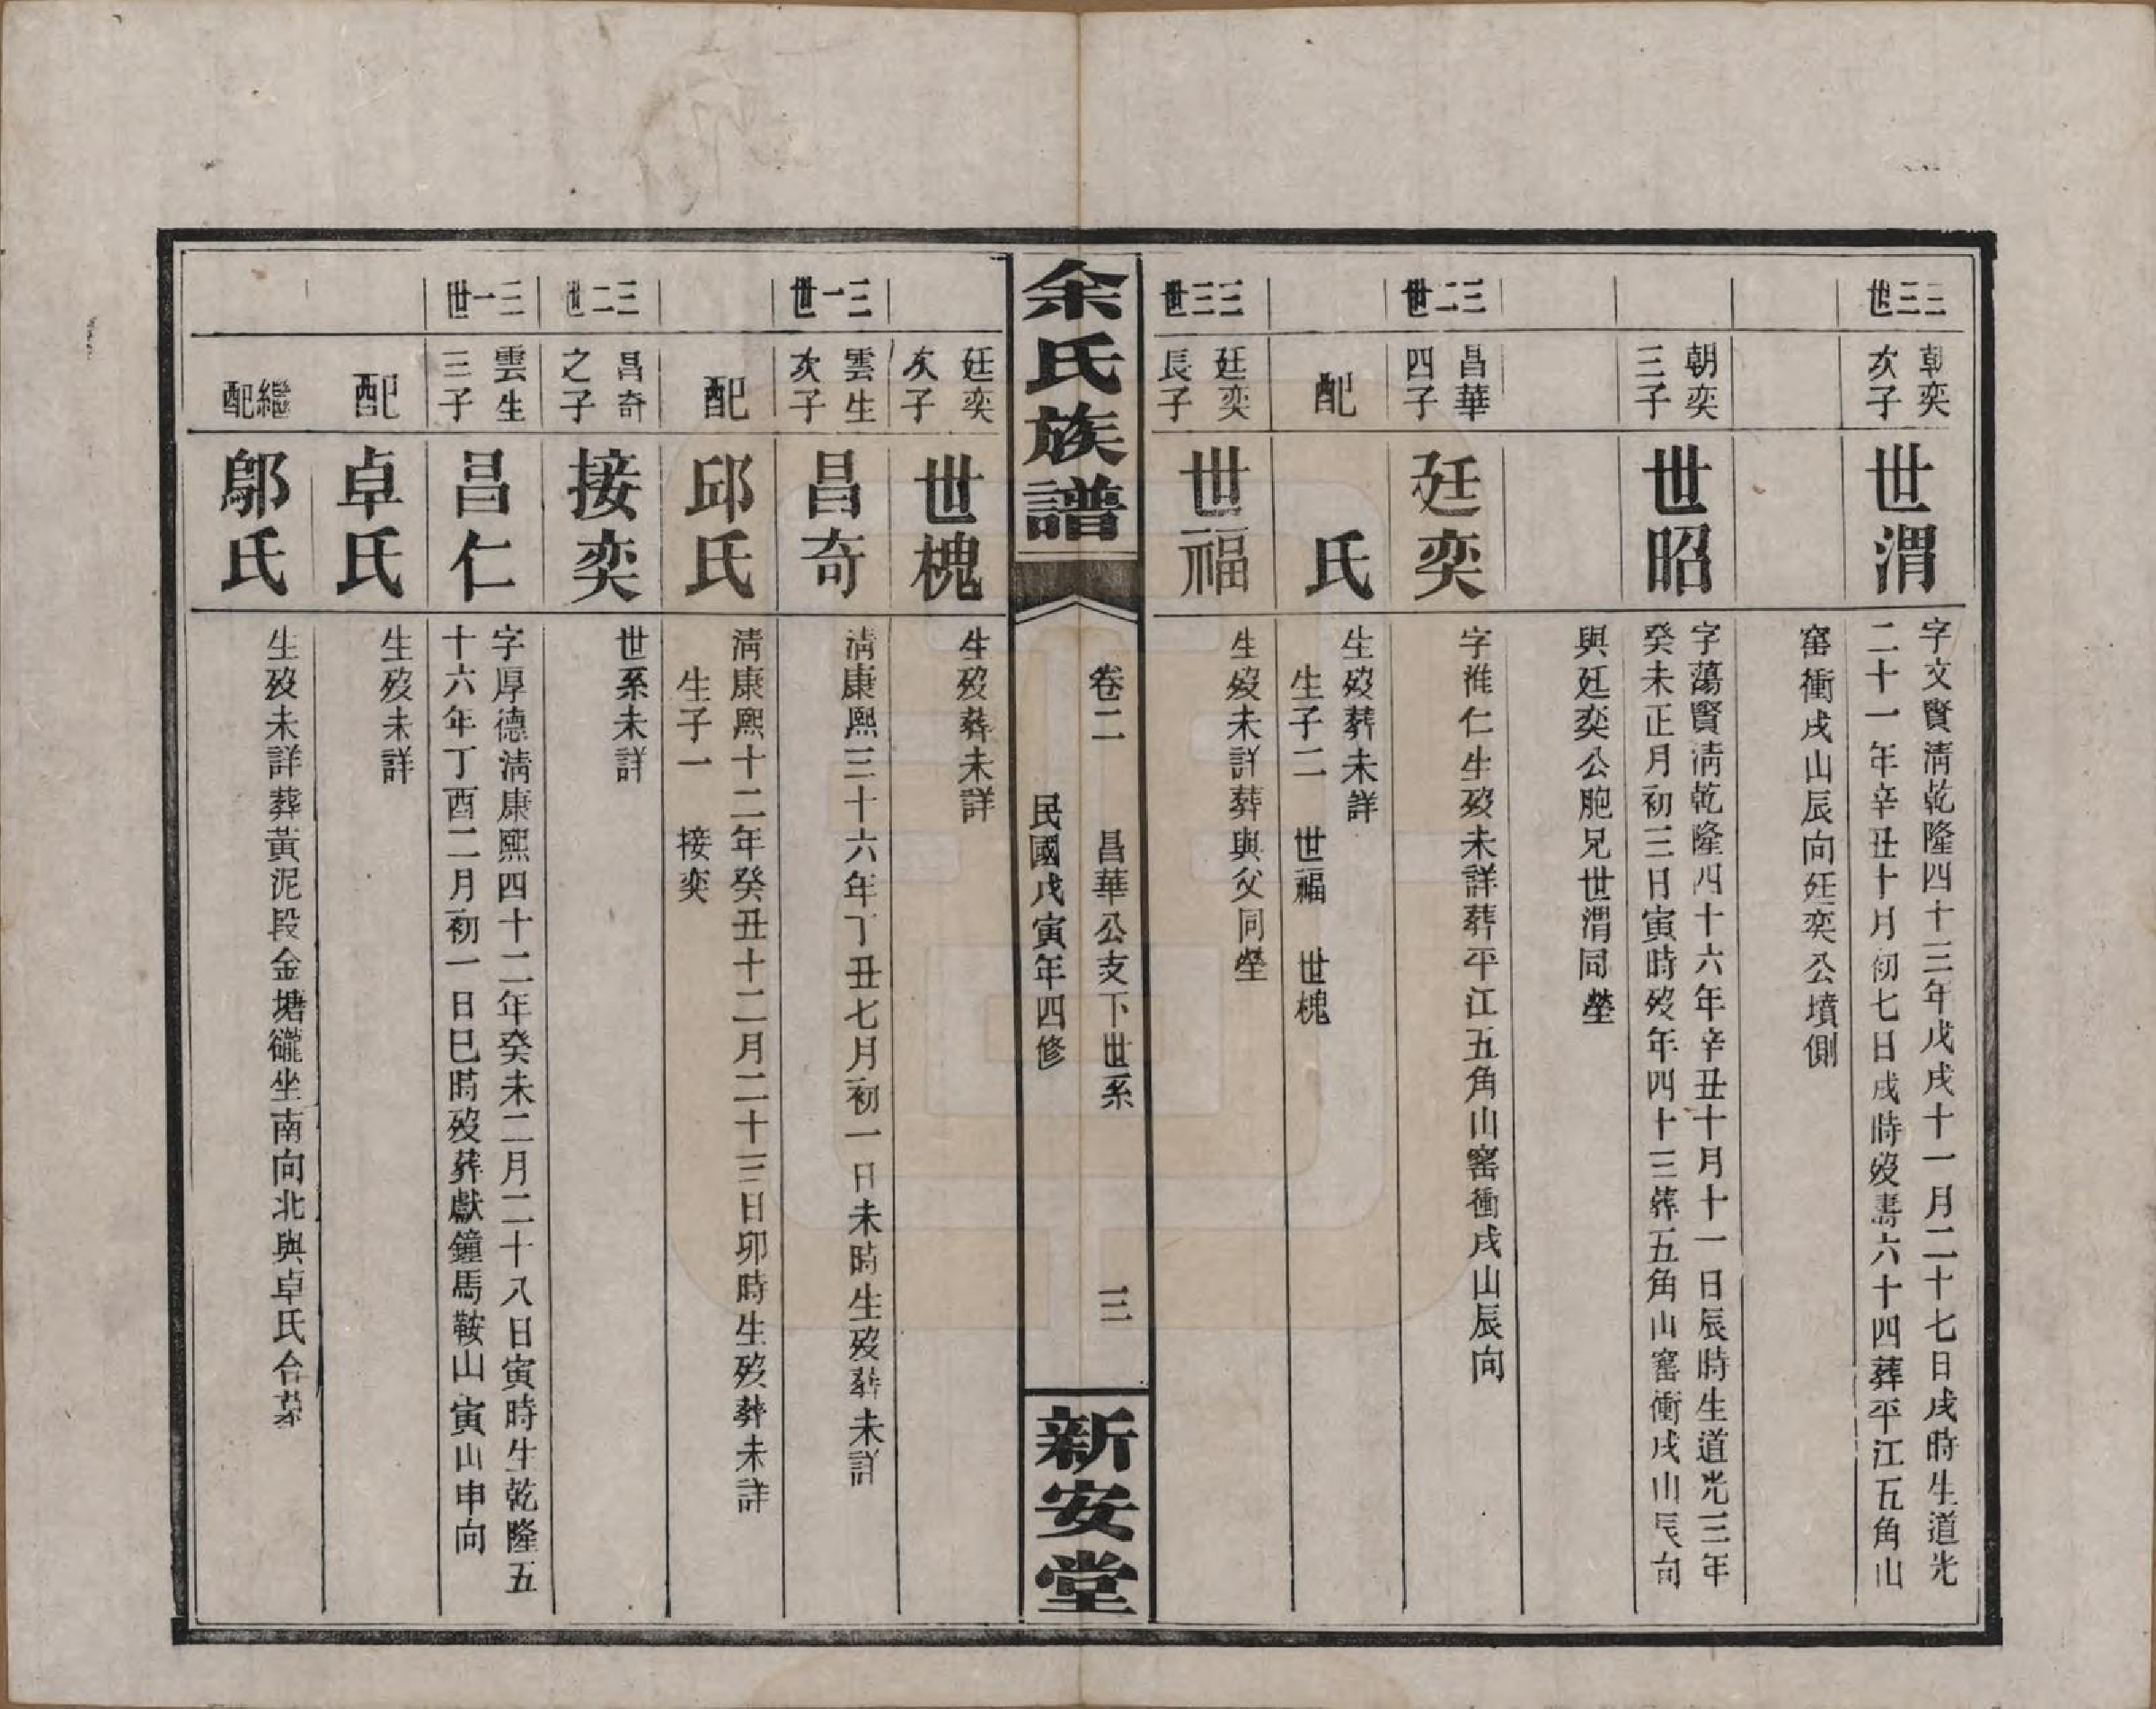 三三世
朝奕
次子
世渭
字文賢清乾隆四十三年戊戌十一月二十七日戌時生道光
二十一年辛丑十月初七日戌時歿壽六十四葬平江五角山
窰衝戌山辰向廷奕公墳側
朝奕
三子
世昭
字蕩賢清乾隆四十六年辛丑十月十一日辰時生道光三年
癸未正月初三日寅時歿年四十三葬五角山窰衝戌山辰向
與廷奕公胞兄世渭同塋
三二世
昌華
四子
廷奕
字推仁生歿未詳葬平江五角山窰衝戌山辰向
配
氏
生歿葬未詳
生子二 世福 世槐
三三世
廷奕
長子
世福
生歿未詳葬與父同塋
余氏族譜
卷二 昌華公支下世系 三
民國戊寅年四修
新安堂
廷奕
次子
世槐
生歿葬未詳
三一世
雲生
次子
昌奇
清康熙三十六年丁丑七月初一日未時生歿葬未詳
配
邱氏
清康熙十二年癸丑十二月二十三日卯時生歿葬未詳
生子一 接奕
三二世
昌奇
之子
接奕
世系未詳
三一世
雲生
三子
昌仁
字厚德清康熙四十二年癸未二月二十八日寅時生乾隆五
十六年丁酉二月初一日巳時歿葬獻鐘馬鞍山寅山申向
配
卓氏
生歿未詳
繼配
鄔氏
生歿未詳葬黃泥段金塘礲坐南向北與卓氏合塟